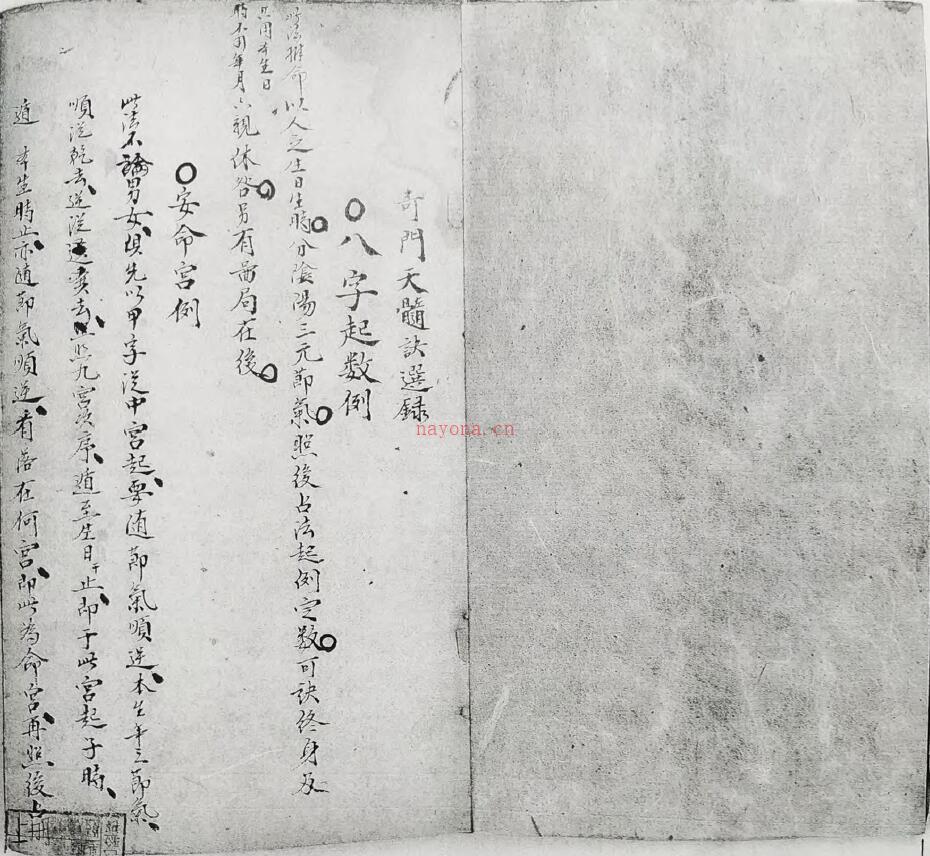 奇門天髓訣選録
八字起数例
推命以人之生日生時分陰陽三元節氣照後占法起例定數可訣終身及
只用本生日
時不用年月
六親休咎另有啚局在後
安命宮例
此法不論男女俱先以甲字從中宮起要随節氣順逆本生年之節氣
順從乾去逆從巽去照九宮次序遁至生日干止即于此宮起子時
遁本生時止亦随節氣順逆看落在何宮即此為命宮再照後占
nayona.cn